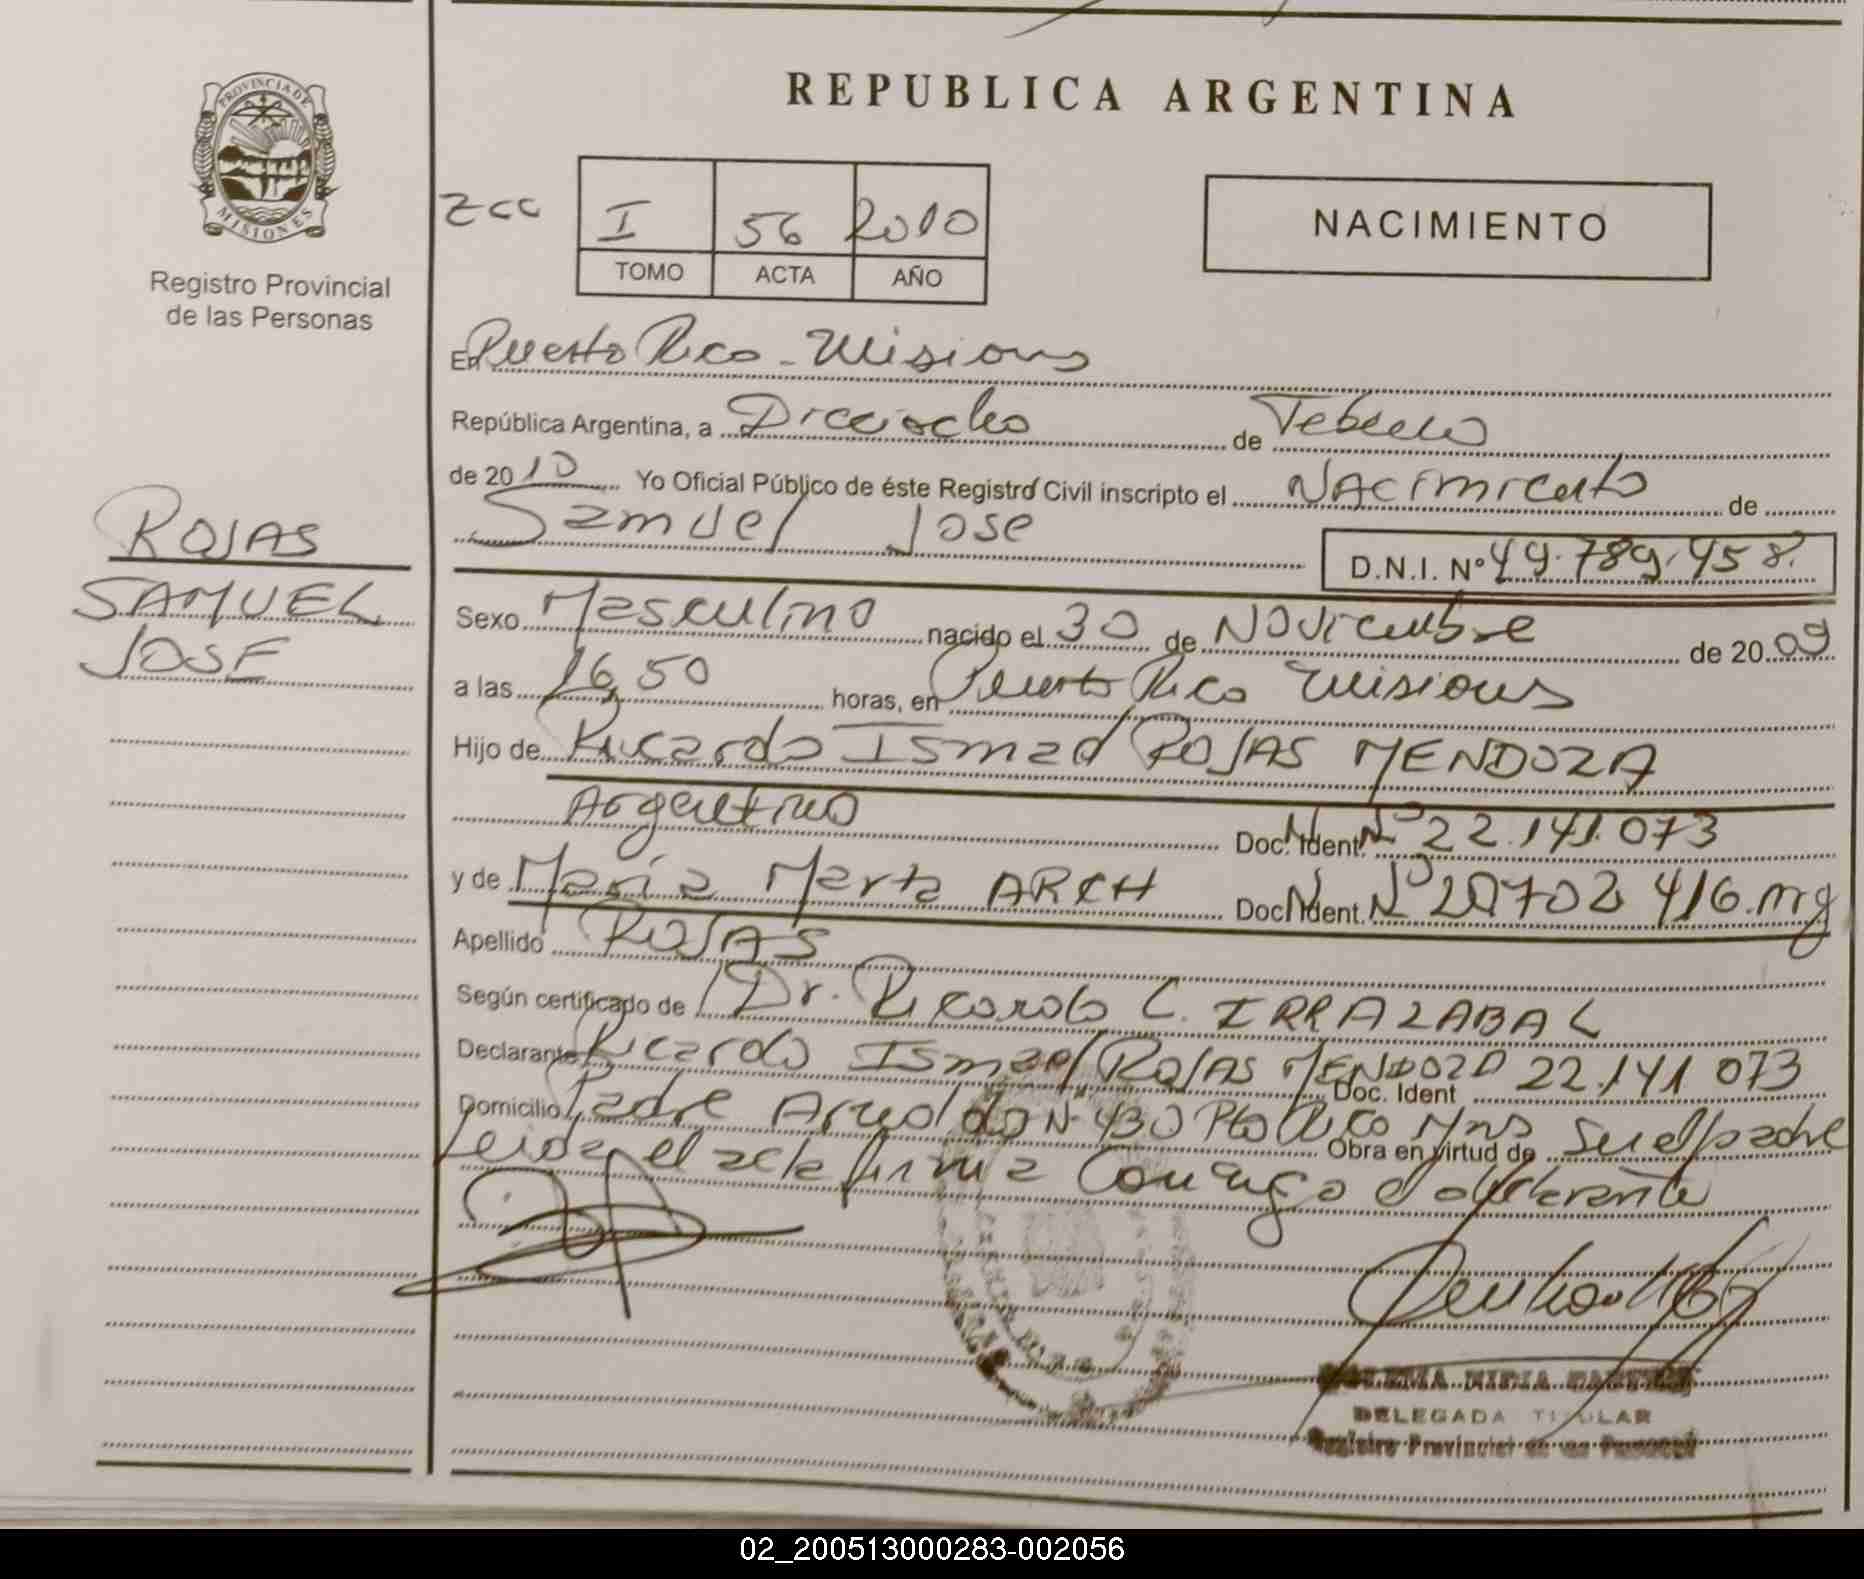 REPUBLICA ARGENTINA
PROVINCIA DE
MISIONES
Registro Provincial
de las Personas
zcc
I 56 2010
TOMO ACTA AÑO
NACIMIENTO
ROJAS
SAMUEL
JOSE
En Puerto Rico - Misiones
República Argentina, a Dieciocho de Febrero
de 2010 Yo Oficial Público de éste Registro Civil inscripto el Nacimiento de
Samuel Jose
D.N.I. Nº 49.789.458.
Sexo Masculino nacido el 30 de Noviembre de 2009
a las 16,50 horas, en Puerto Rico Misiones
Hijo de Ricardo Ismael ROJAS MENDOZA
Argentino Doc. Ident. Nº 22.141.073
y de María Marta ARCH Doc. Ident. Nº 20702416.mg
Apellido ROJAS
Según certificado de Dr. Ricardo C. IRRAZABAL
Declarante Ricardo Ismael ROJAS MENDOZA Doc. Ident 22.141 073
Domicilio Padre Arnoldo Nº 430 Pto Rico Mns Obra en virtud de Su el padre
Leida el acta firma Conmigo el declarante
DELEGADA TITULAR
Registro Provincial de las Personas
02_200513000283-002056